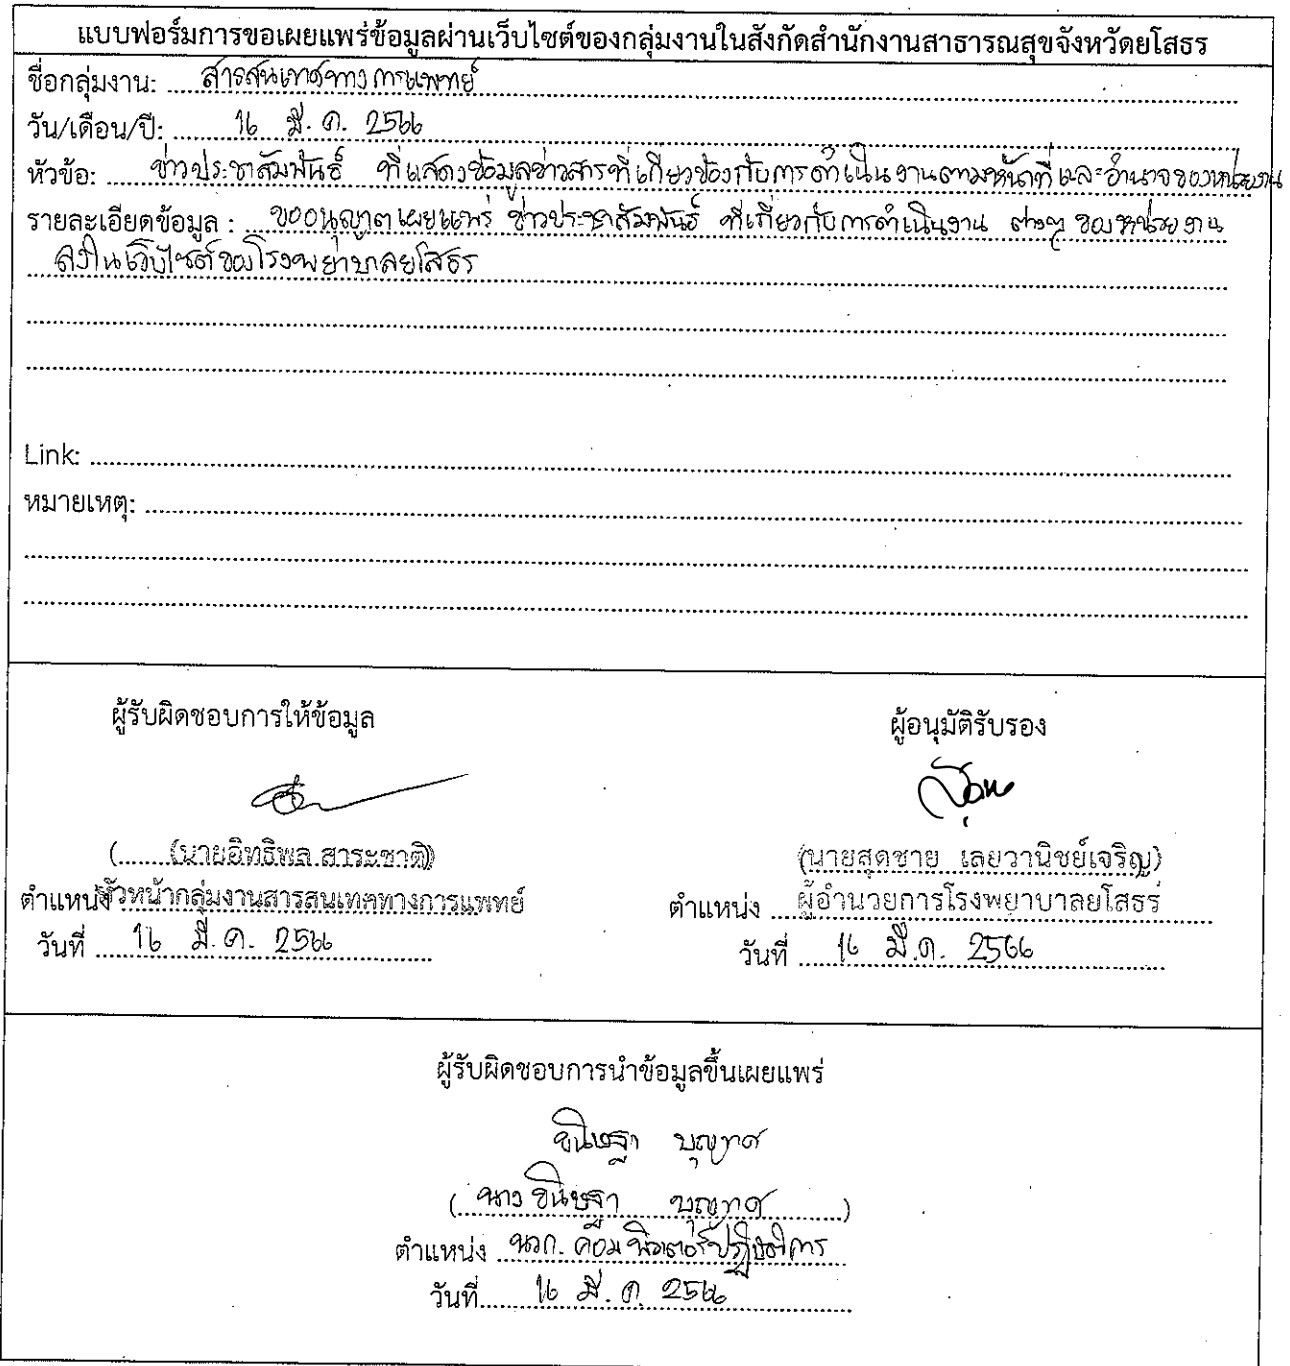 แบบฟอร์มการขอเผยแพร่ข้อมูลผ่านเว็บไซต์ของกลุ่มงานในสังกัดสำนักงานสาธารณสุขจังหวัดยโสธร
ชื่อกลุ่มงาน: สารสนเทศทางการแพทย์
วัน/เดือน/ปี: 16 มี.ค. 2566
หัวข้อ: ข่าวประชาสัมพันธ์ ที่แสดงข้อมูลข่าวสารที่เกี่ยวข้องกับการดำเนินงานตามหน้าที่และอำนาจของหน่วยงาน
รายละเอียดข้อมูล : ขออนุญาตเผยแพร่ ข่าวประชาสัมพันธ์ ที่เกี่ยวกับการดำเนินงาน ต่างๆ ของหน่วยงาน
ลงในเว็บไซต์ของโรงพยาบาลยโสธร
Link:
หมายเหตุ:
ผู้รับผิดชอบการให้ข้อมูล ผู้อนุมัติรับรอง
(นายอิทธิพล สาระชาติ) (นายสุดชาย เลยวานิชย์เจริญ)
ตำแหน่ง หัวหน้ากลุ่มงานสารสนเทศทางการแพทย์ ตำแหน่ง ผู้อำนวยการโรงพยาบาลยโสธร
วันที่ 16 มี.ค. 2566 วันที่ 16 มี.ค. 2566
ผู้รับผิดชอบการนำข้อมูลขึ้นเผยแพร่
ขนิษฐา บุญทศ
(นางขนิษฐา บุญทศ)
ตำแหน่ง นวก. คอมพิวเตอร์ปฏิบัติการ
วันที่ 16 มี.ค. 2566